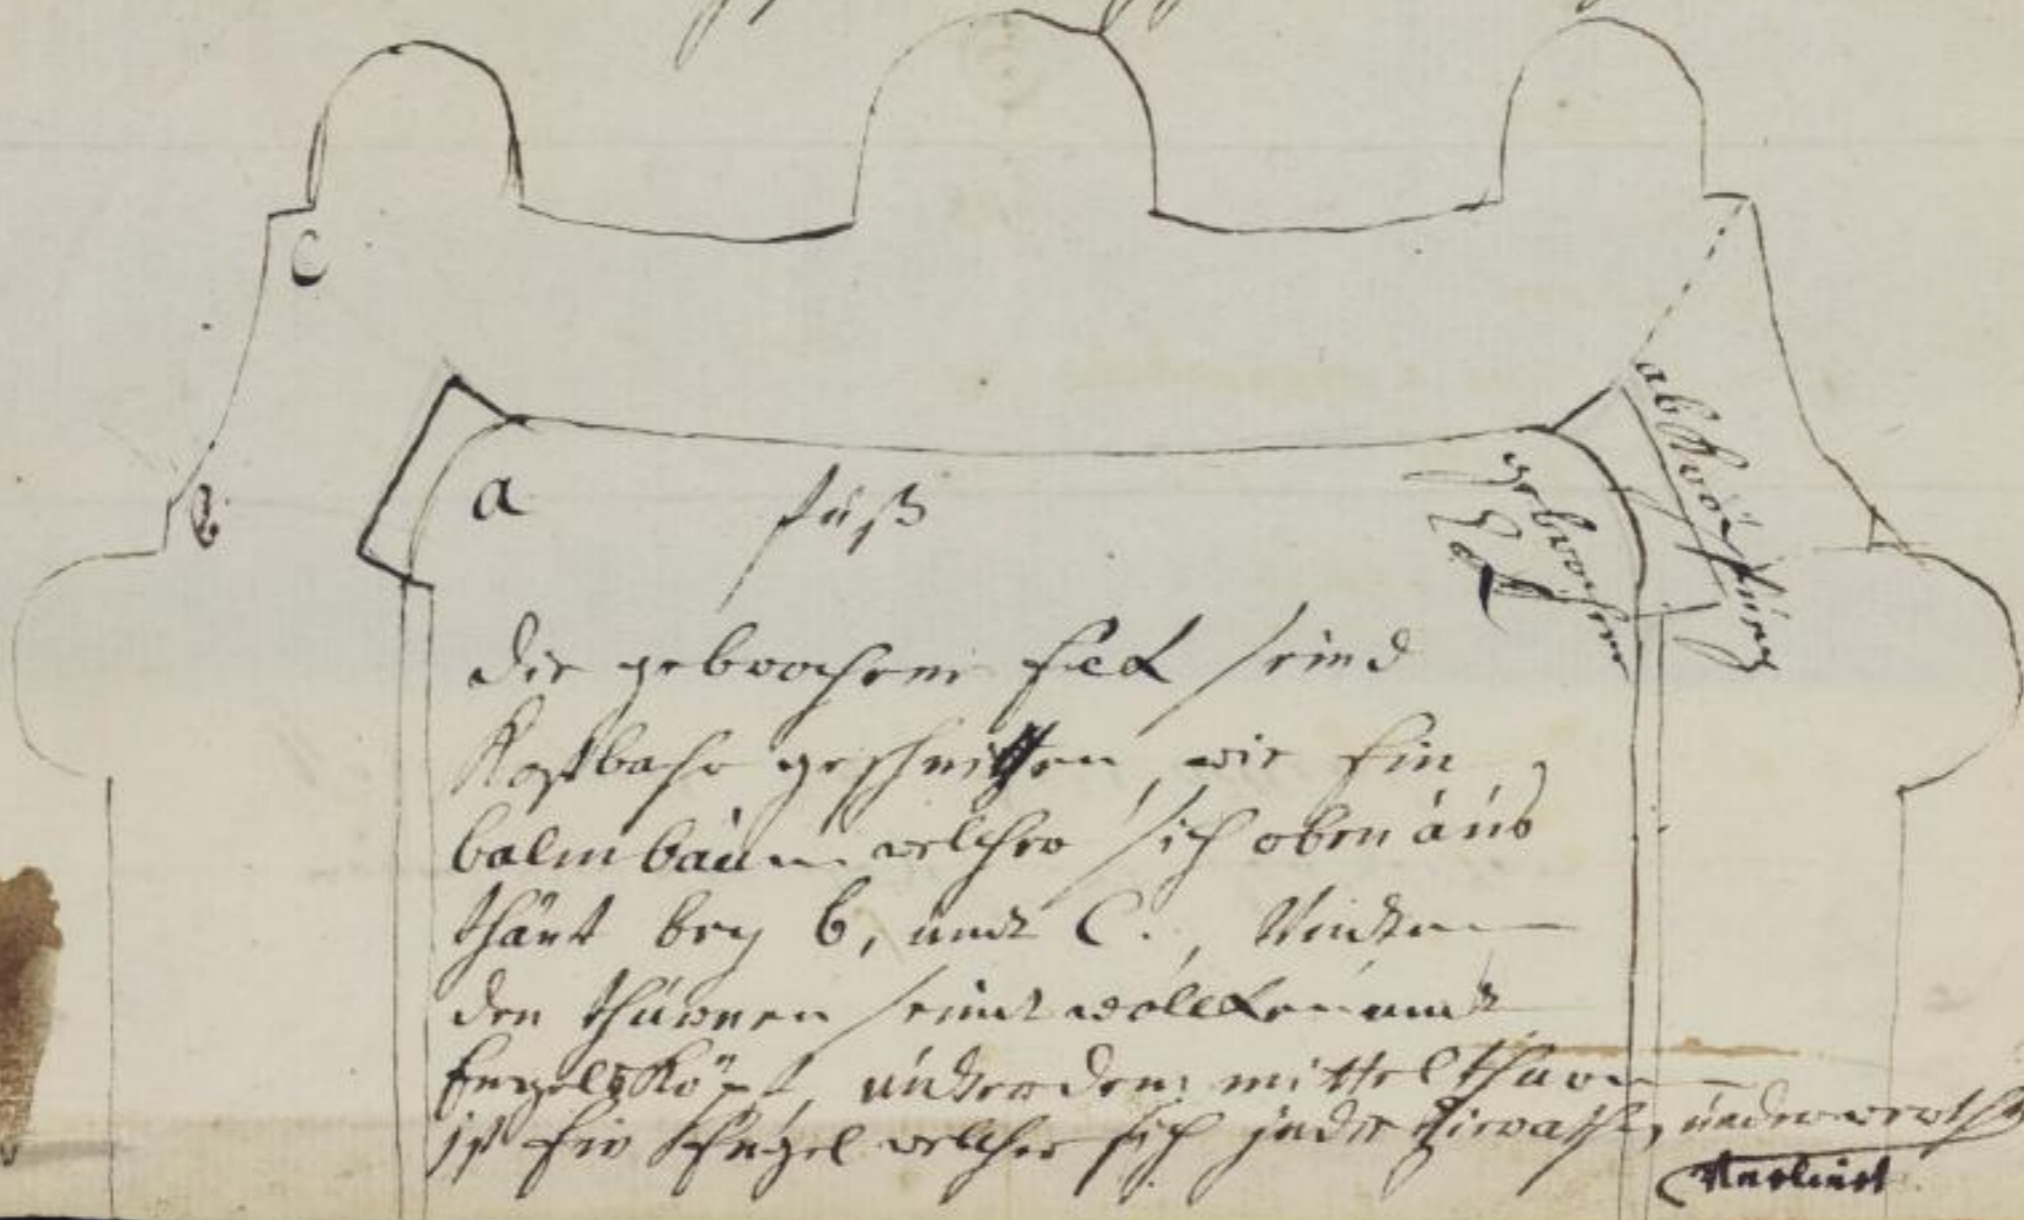 C
b
a
fuß
gebrochen
Eck
die gebrochene Eck seind
Kostbahr geschnitten, wie Ein
balmbaum welcher sich oben aus
thänt bey b, undt C., Undten
den thürnen seindt wollken undt
Engelsköpf, undter dem mittelthurn
ist Ein Engel welcher sich in der Zierath, underwerths
Verliert